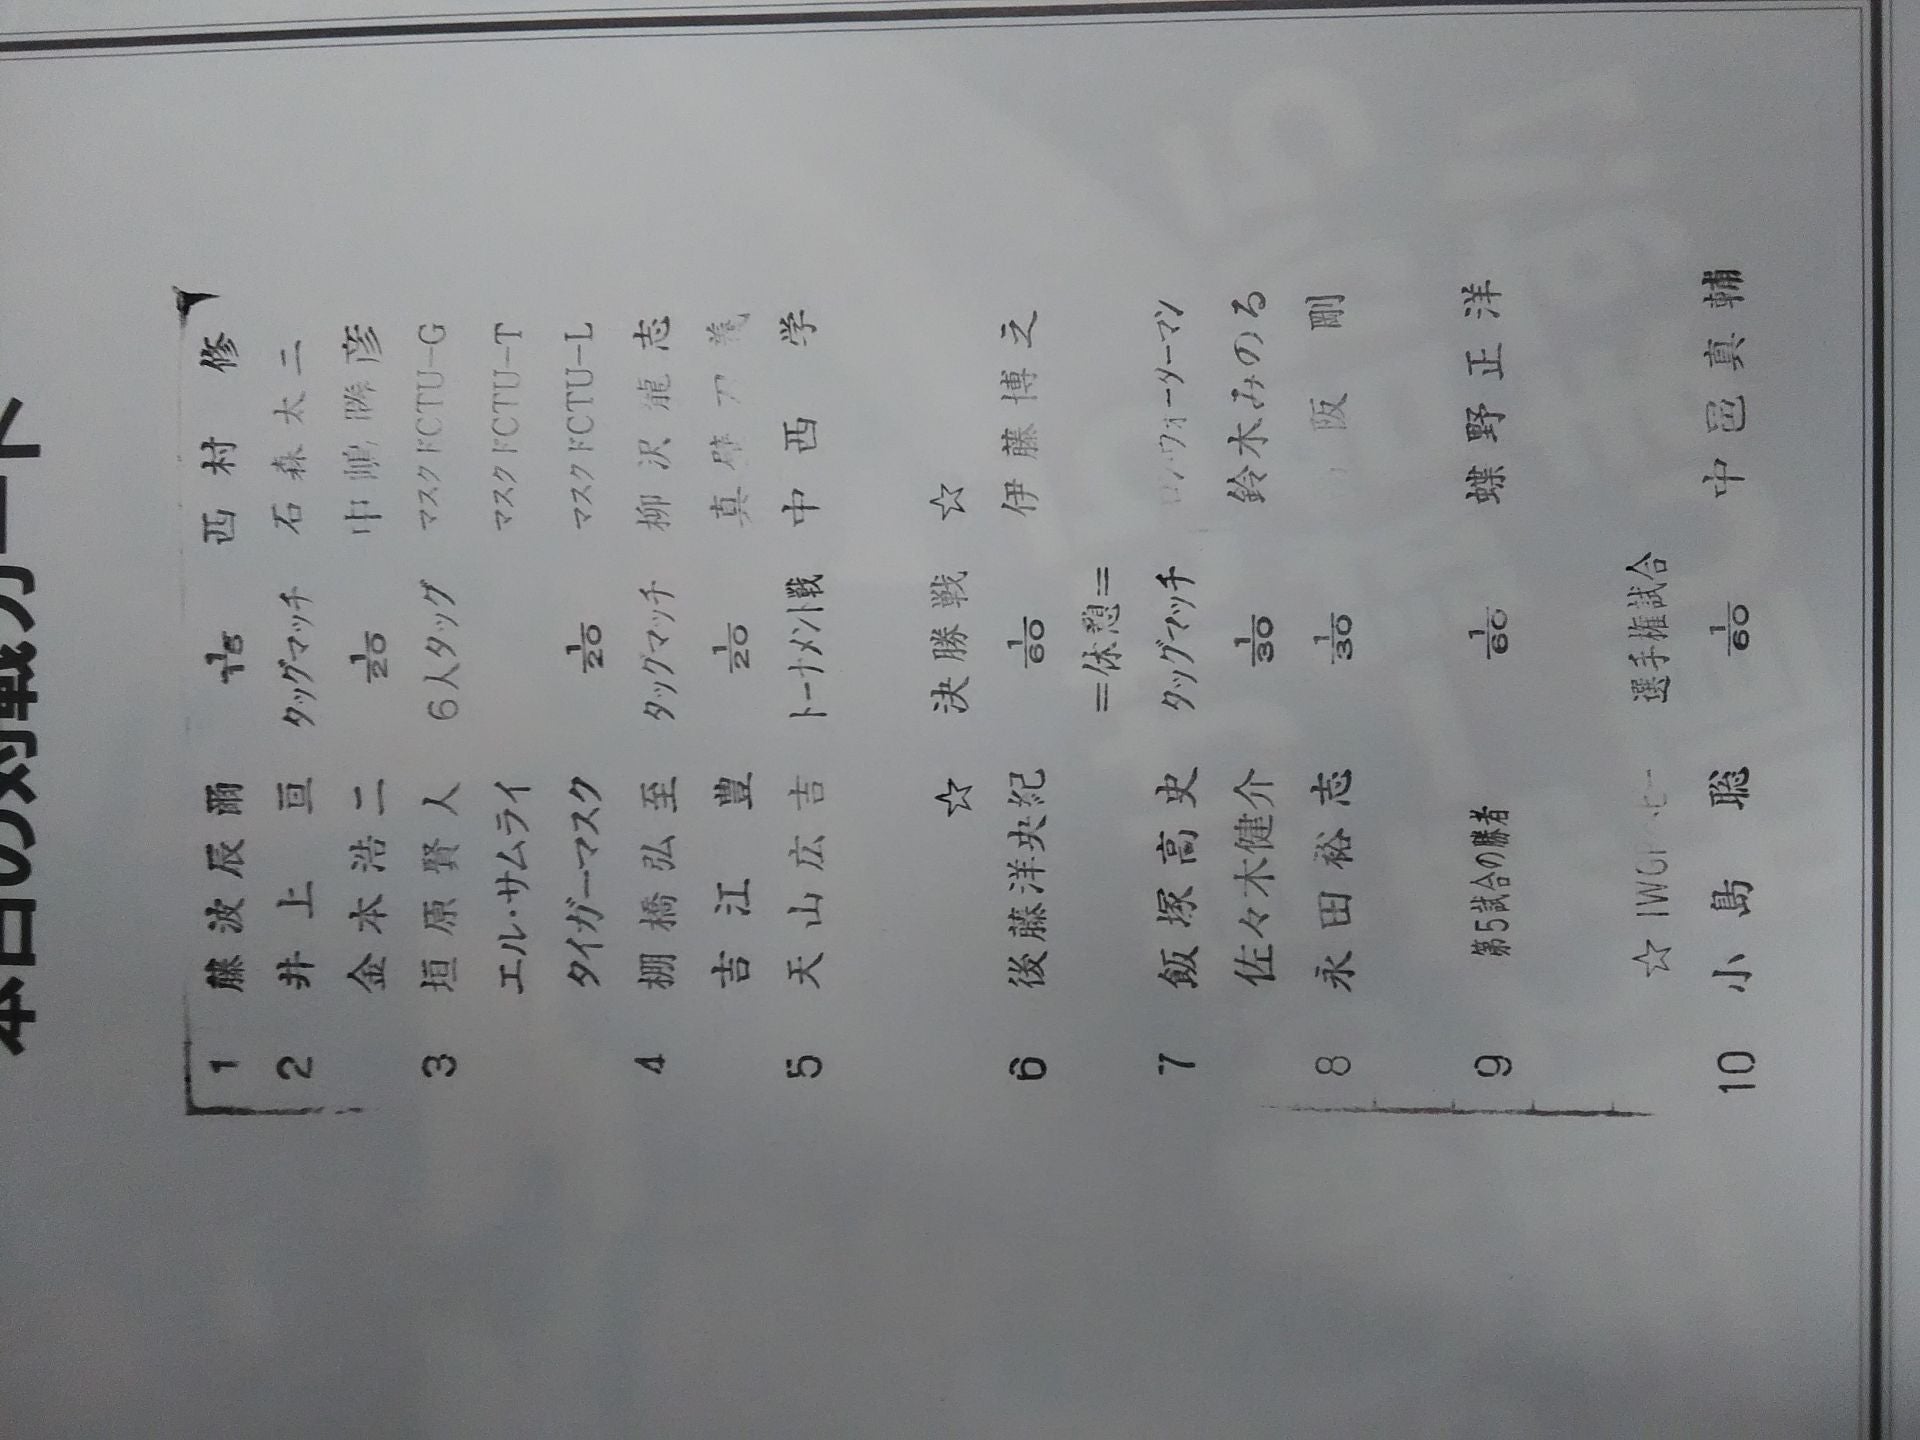 本日の対戦カード
1 藤波辰爾 1/15 西村修
2 井上亘 タッグマッチ 石森太二
金本浩二 1/20 中嶋勝彦
3 垣原賢人 6人タッグ マスクドCTU-G
エル・サムライ マスクドCTU-T
タイガーマスク 1/20 マスクドCTU-L
4 棚橋弘至 タッグマッチ 柳沢龍志
吉江豊 1/20 真壁刀義
5 天山広吉 トーナメント戦 中西学
☆ 決勝戦 ☆
6 後藤洋央紀 1/60 伊藤博之
=休憩=
7 飯塚高史 タッグマッチ ロン・ウォーターマン
佐々木健介 1/30 鈴木みのる
8 永田裕志 1/30 阪剛
9 第5試合の勝者 1/60 蝶野正洋
☆ IWGP 選手権試合
10 小島聡 1/60 中邑真輔